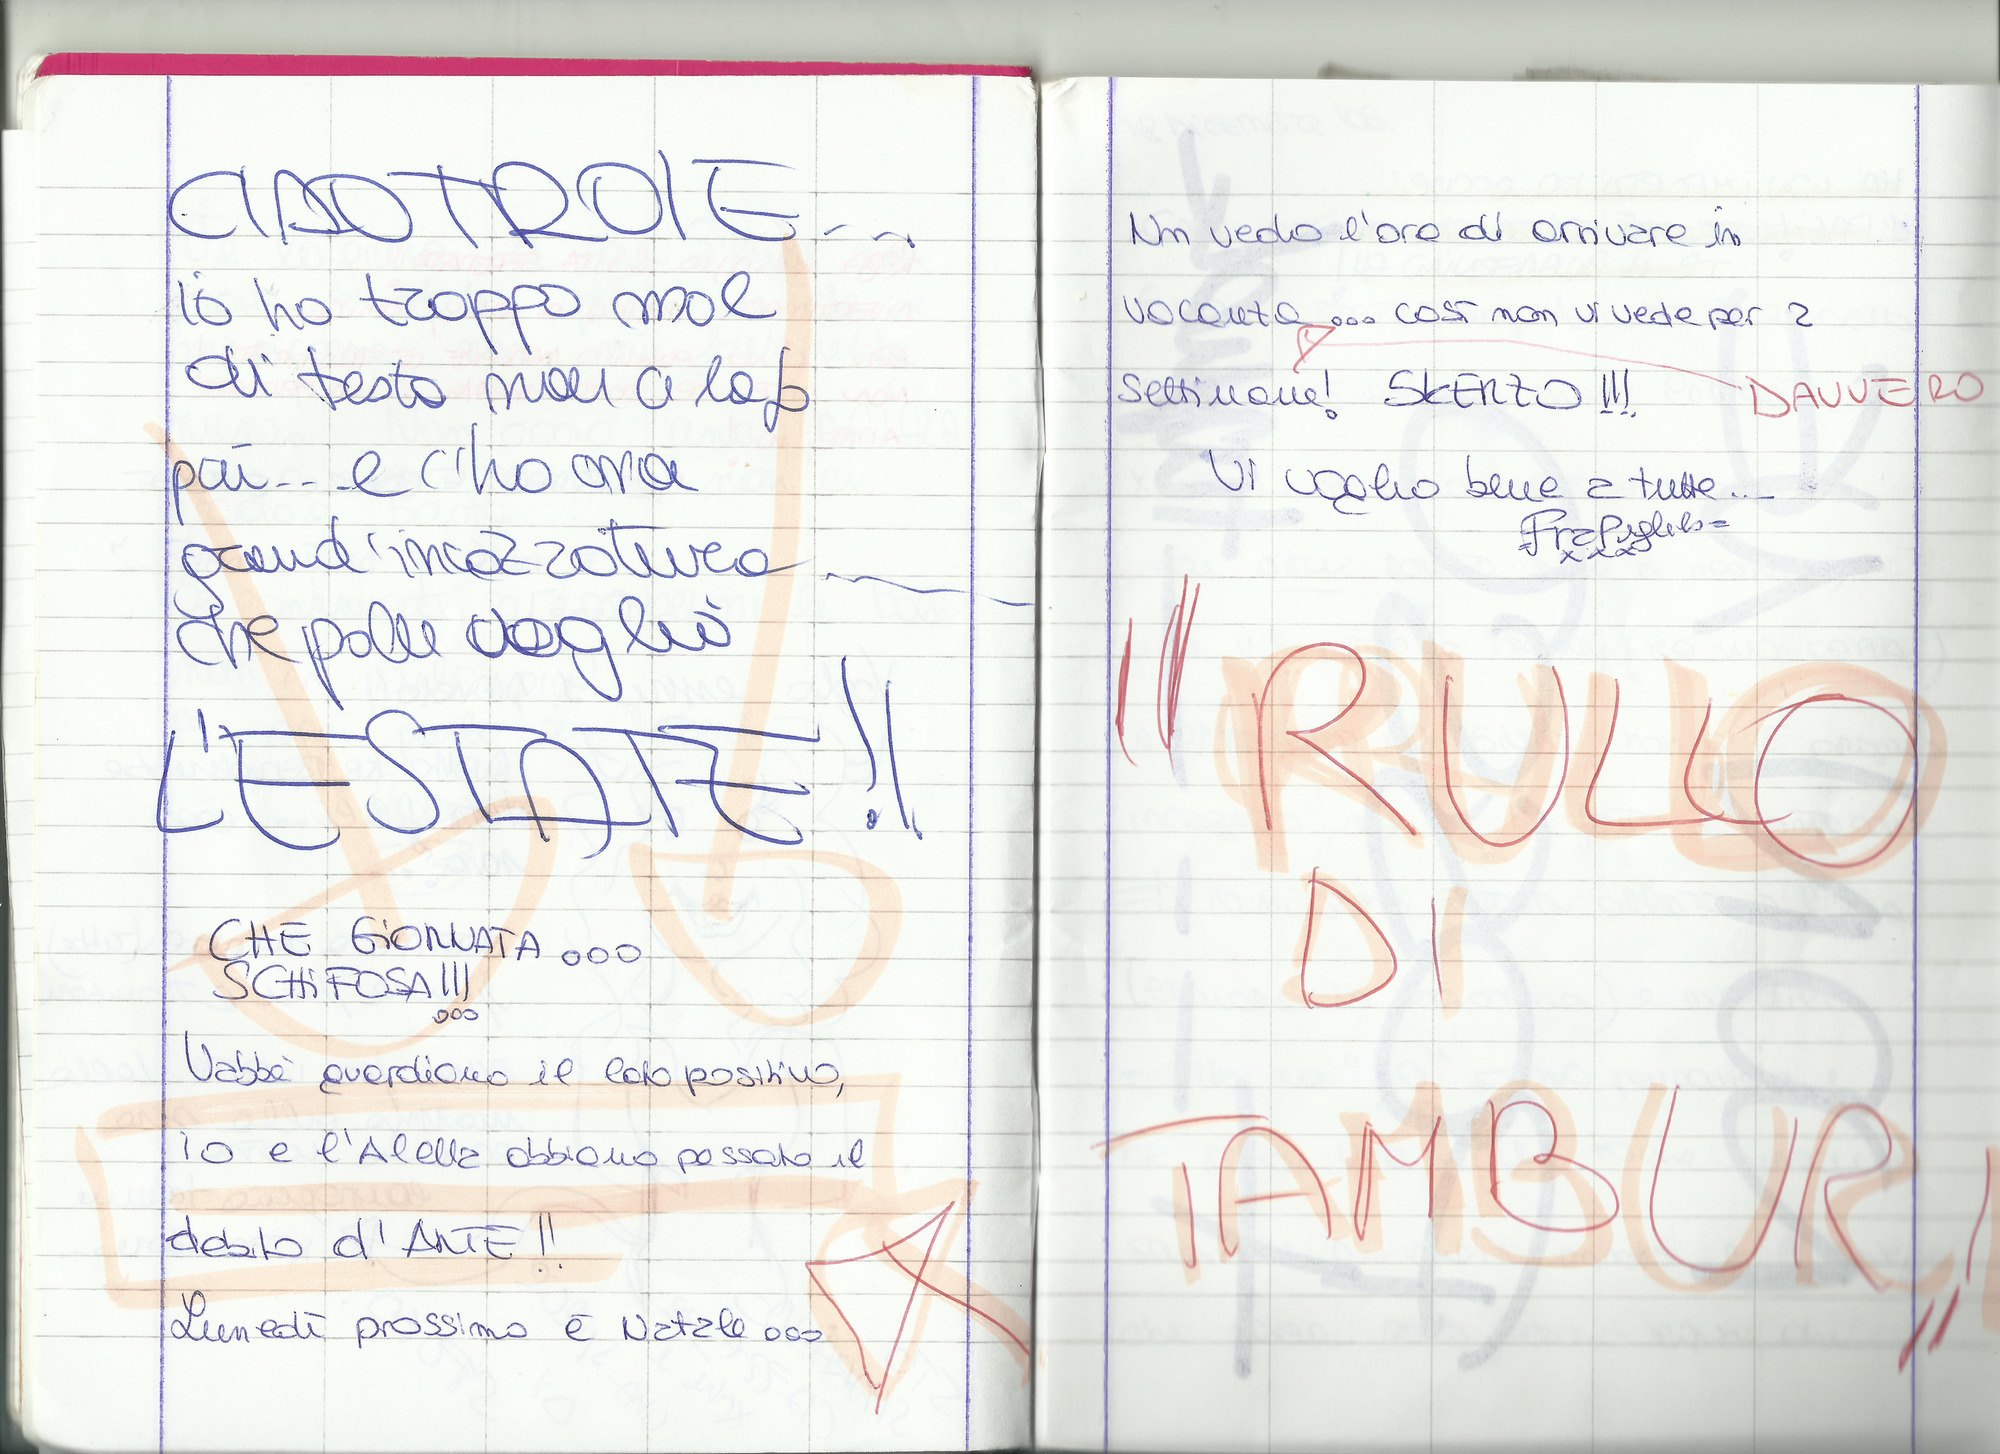 CIAO TROIE...
io ho troppo mal
di testa non ce la fo
più... e c'ho una
grand'incazzatura
che palle voglio
L'ESTATE!!
CHE GiORNATA...
SCHiFOSA!!!
...
Vabbè guardiamo il lato positivo,
io e l'Alella abbiamo passato il
debito d'ANTE!!
Lunedì prossimo è Natale...
Nn vedo l'ora di arrivare in
vacanza... così non vi vede per 2
settimane! SKERZO!!!
DAVVERO
Vi voglio bene a tutte...
"RULLO
DI
TAMBURI"